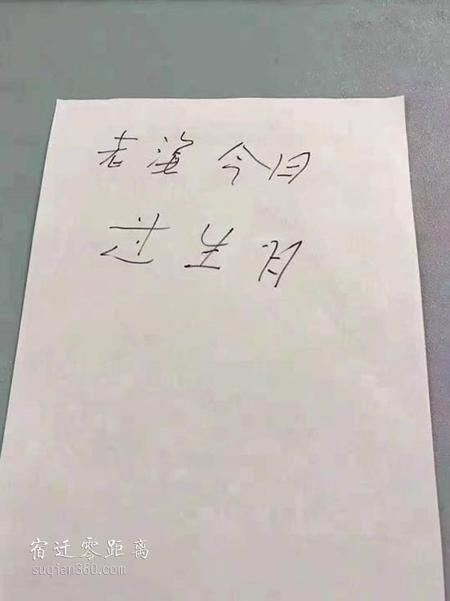 老海今日
过生日
宿迁零距离
suqian360.com